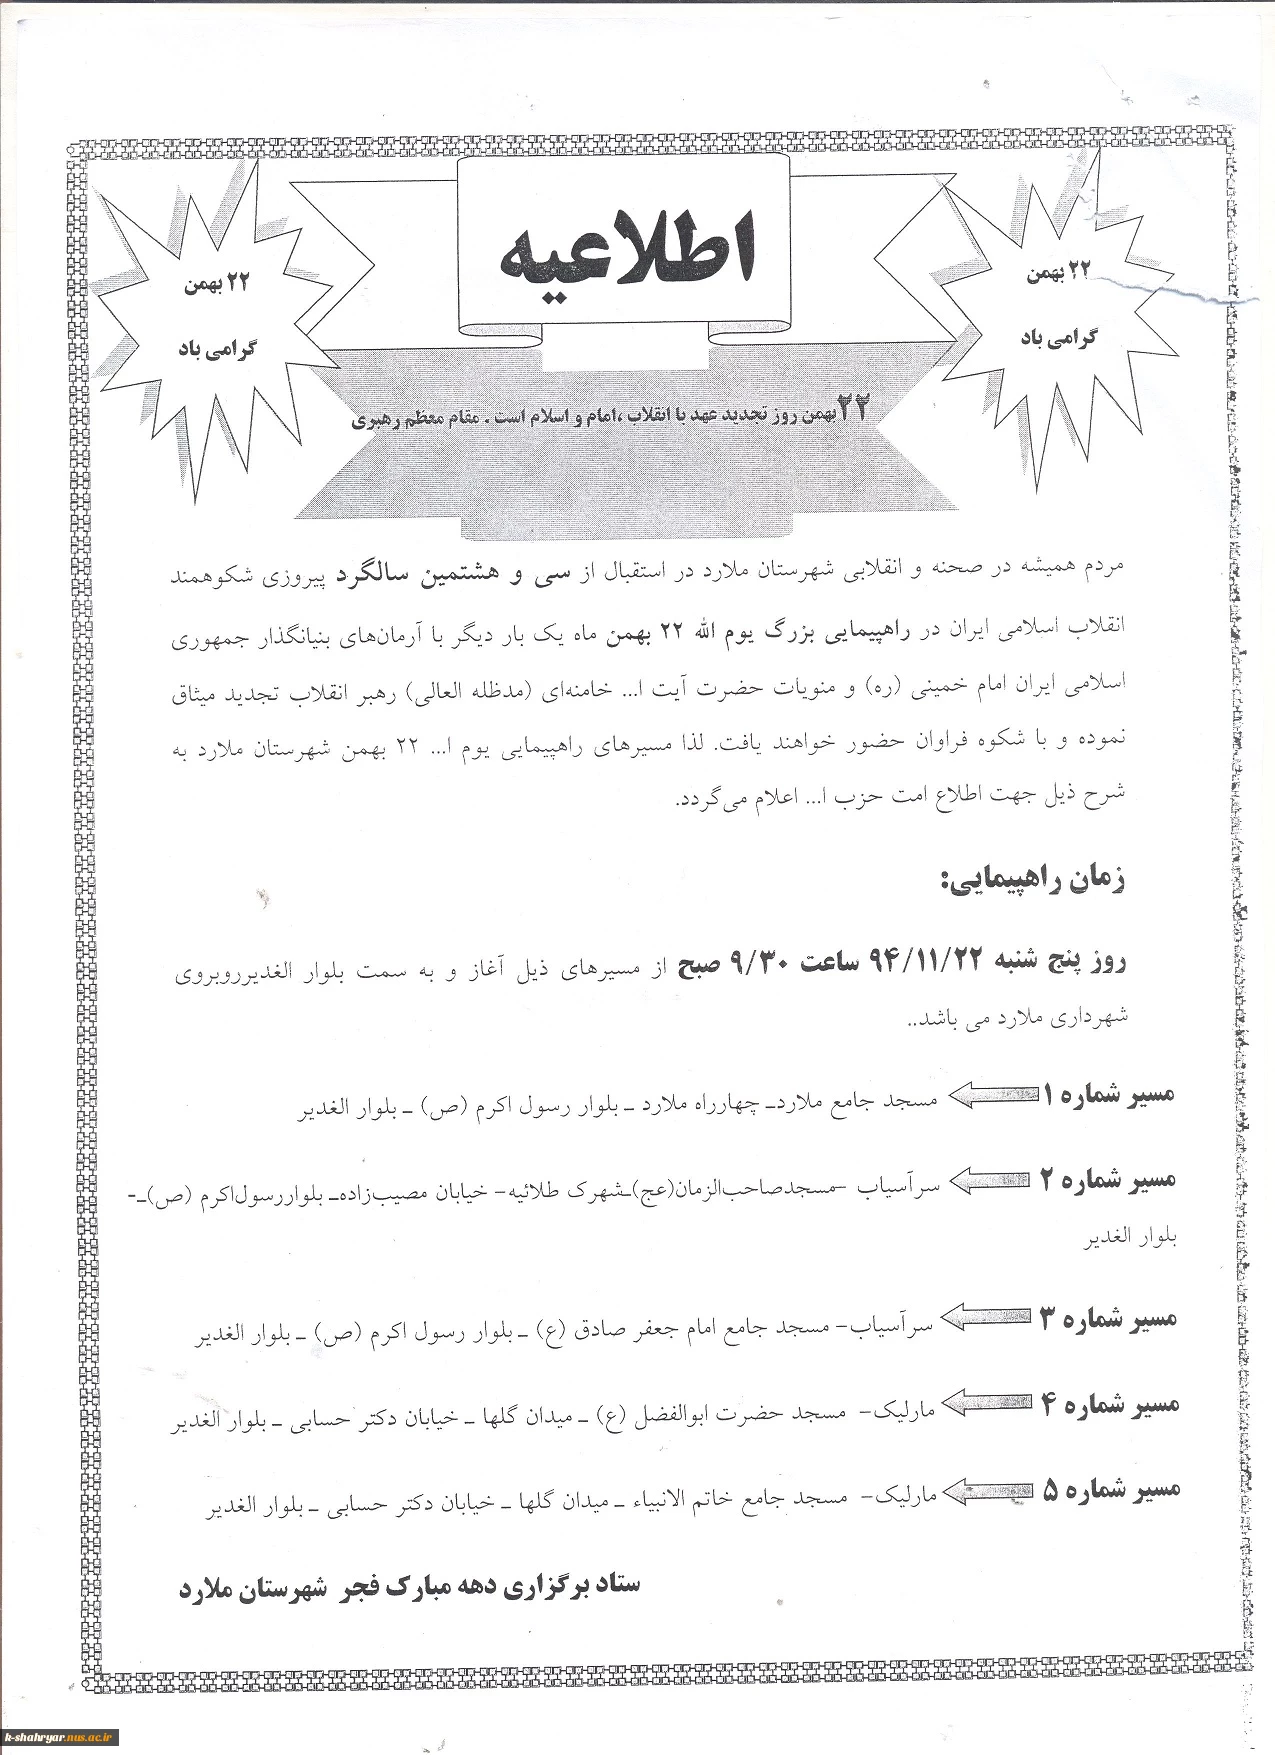 اطلاعیه
۲۲ بهمن
گرامی باد
۲۲ بهمن
گرامی باد
۲۲ بهمن روز تجدید عهد با انقلاب ،امام و اسلام است . مقام معظم رهبری
مردم همیشه در صحنه و انقلابی شهرستان ملارد در استقبال از سی و هشتمین سالگرد پیروزی شکوهمند
انقلاب اسلامی ایران در راهپیمایی بزرگ یوم الله ۲۲ بهمن ماه یک بار دیگر با آرمان‌های بنیانگذار جمهوری
اسلامی ایران امام خمینی (ره) و منویات حضرت آیت ا... خامنه‌ای (مدظله العالی) رهبر انقلاب تجدید میثاق
نموده و با شکوه فراوان حضور خواهند یافت. لذا مسیرهای راهپیمایی یوم ا... ۲۲ بهمن شهرستان ملارد به
شرح ذیل جهت اطلاع امت حزب ا... اعلام می‌گردد.
زمان راهپیمایی:
روز پنج شنبه ۹۴/۱۱/۲۲ ساعت ۹/۳۰ صبح از مسیرهای ذیل آغاز و به سمت بلوار الغدیرروبروی
شهرداری ملارد می باشد..
مسیر شماره ۱ مسجد جامع ملارد_ چهارراه ملارد _ بلوار رسول اکرم (ص) _ بلوار الغدیر
مسیر شماره ۲ سرآسیاب -مسجدصاحب‌الزمان(عج)_شهرک طلائیه- خیابان مصیب‌زاده_ بلواررسول‌اکرم (ص)_-
بلوار الغدیر
مسیر شماره ۳ سرآسیاب- مسجد جامع امام جعفر صادق (ع) _ بلوار رسول اکرم (ص) _ بلوار الغدیر
مسیر شماره ۴ مارلیک- مسجد حضرت ابوالفضل (ع) _ میدان گلها _ خیابان دکتر حسابی _ بلوار الغدیر
مسیر شماره ۵ مارلیک- مسجد جامع خاتم الانبیاء _ میدان گلها _ خیابان دکتر حسابی _ بلوار الغدیر
ستاد برگزاری دهه مبارک فجر شهرستان ملارد
k-shahryar.nus.ac.ir